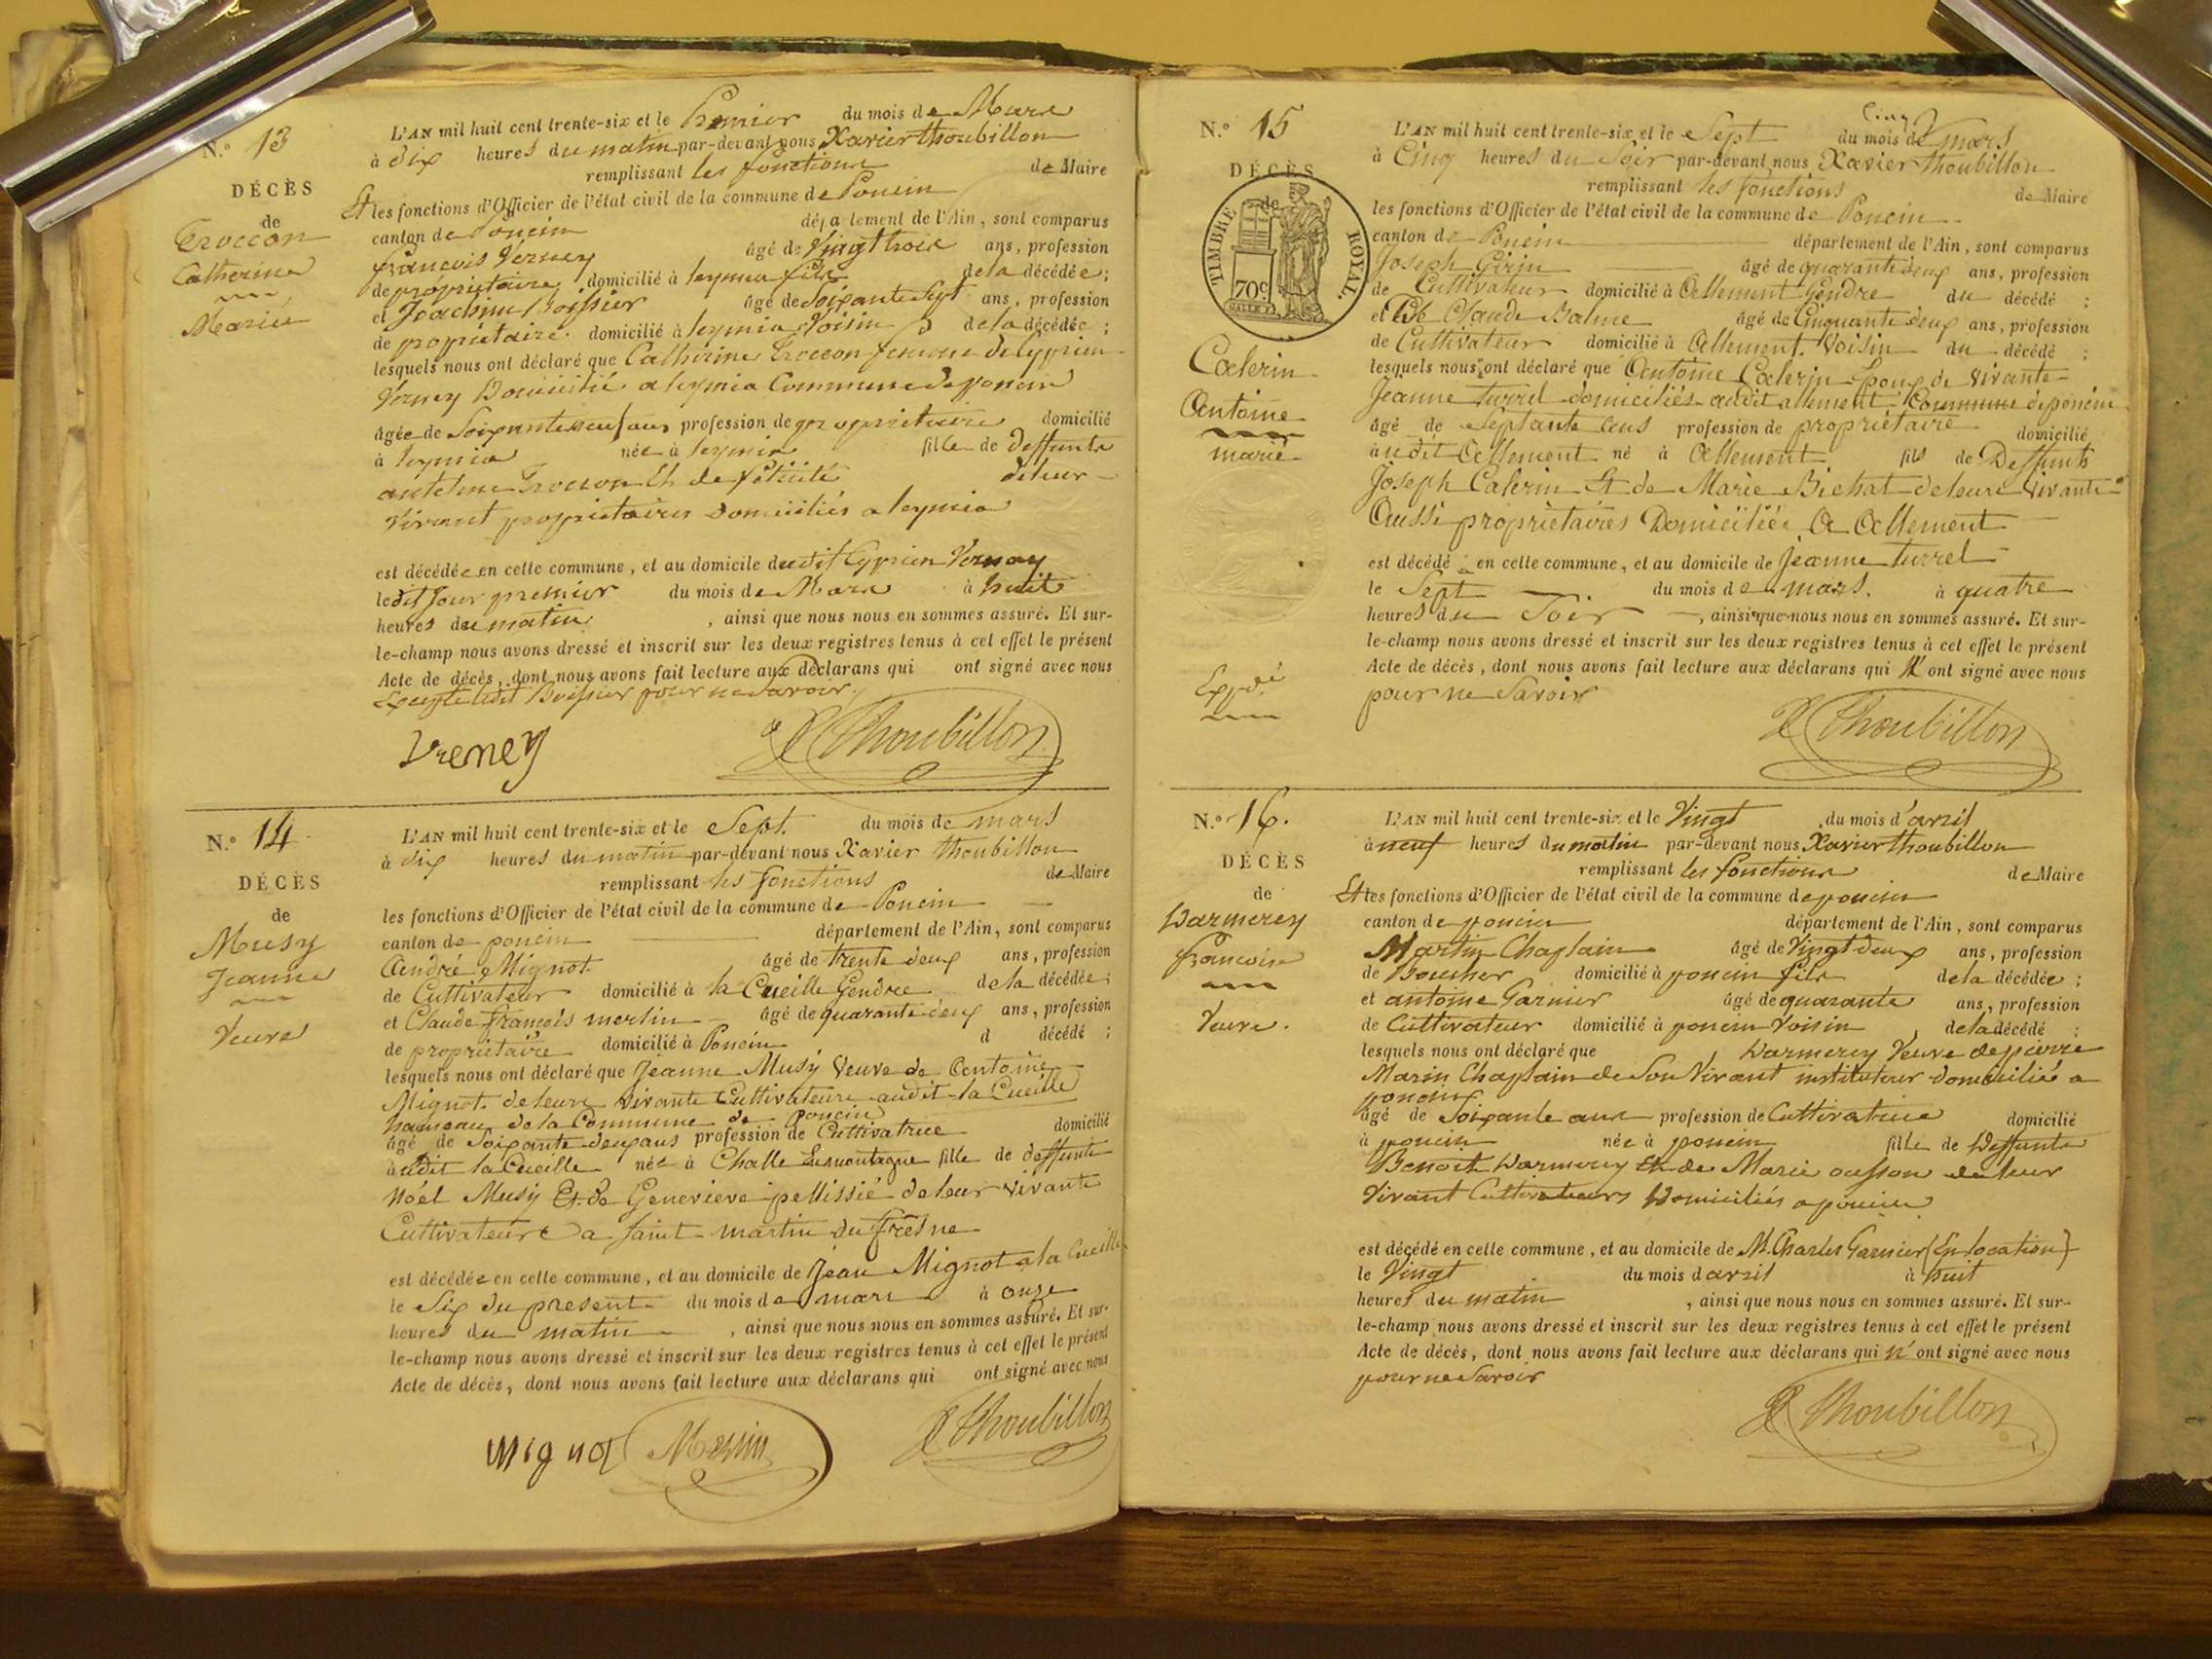 N.° 13
DÉCÈS
de
Troccon
Catherine
Mariée
L'AN mil huit cent trente-six et le Premier du mois de Mars
à dix heures du matin par-devant nous Xavier Thoubillon
remplissant les fonctions de Maire
Et les fonctions d'Officier de l'état civil de la commune de Poncin
canton de Poncin département de l'Ain, sont comparus
françois Verney âgé de Vingt trois ans, profession
de propriétaire domicilié à leymia fils de la décédée ;
et Joachim Boissier âgé de Soixante Sept ans, profession
de propriétaire domicilié à leymia Voisin de la décédée ;
lesquels nous ont déclaré que Catherine Troccon femme de Cyprien
Verney Domicilié a leymia Commune de poncin
âgée de Soixante neuf ans profession de propriétaire domicilié
à leymia née à leymia fille de deffunts
antelme Troccon Et de félicité de leur
vivant propriétaires Domiciliés a leymia
est décédée en cette commune, et au domicile dudit Cyprien Vernay
le dit Jour premier du mois de Mars à huit
heures du matin, ainsi que nous nous en sommes assuré. Et sur-
le-champ nous avons dressé et inscrit sur les deux registres tenus à cet effet le présent
Acte de décès, dont nous avons fait lecture aux déclarans qui ont signé avec nous
Excepté ledit Boissier pour ne Savoir
Vreney X Thoubillon
N.° 14
DÉCÈS
de
Musy
Jeanne
Veuve
L'AN mil huit cent trente-six et le Sept du mois de mars
à dix heures du matin par-devant nous Xavier Thoubillon
remplissant les fonctions de Maire
les fonctions d'Officier de l'état civil de la commune de Poncin
canton de poncin département de l'Ain, sont comparus
André Mignot âgé de trente deux ans, profession
de Cultivateur domicilié à la Cueille Gendre de la décédée ;
et Claude françois merlin âgé de quarante deux ans, profession
de propriétaire domicilié à Poncin d décédé ;
lesquels nous ont déclaré que Jeanne Musy Veuve de Antoine
Mignot de leurs vivants Cultivateurs audit la Cueille
hameau de la Commune de poncin
âgé de Soixante deux ans profession de Cultivatrice domicilié
à udit la Cueille née à Challe Lamontagne fille de deffunts
Noël Musy Et de Genevieve pellissié de leur vivants
Cultivateurs a saint martin du fresne
est décédée en cette commune, et au domicile de Jean Mignot a la Cueille
le Six du present du mois de mars à onze
heures du matin, ainsi que nous nous en sommes assuré. Et sur-
le-champ nous avons dressé et inscrit sur les deux registres tenus à cet effet le présent
Acte de décès, dont nous avons fait lecture aux déclarans qui ont signé avec nous
Mignot X Thoubillon
N.° 15
DÉCÈS
de
TIMBRE ROYAL.
70c
Calerin
Antoine
marié
Expdé
Cinq
L'AN mil huit cent trente-six et le Sept du mois de mars
à Cinq heures du Soir par-devant nous Xavier Thoubillon
remplissant les fonctions de Maire
les fonctions d'Officier de l'état civil de la commune de Poncin
canton de Poncin département de l'Ain, sont comparus
Joseph Girin âgé de quarante deux ans, profession
de Cultivateur domicilié à Allement Gendre du décédé ;
et Claude Balme âgé de Cinquante deux ans, profession
de Cultivateur domicilié à Allement Voisin du décédé ;
lesquels nous ont déclaré que Antoine Calerin Epoux de vivante
Jeanne Turrel domiciliés audit allement Commune de poncin
âgé de Septante ans profession de propriétaire domicilié
audit Allement né à Allement fils de Deffunts
Joseph Calerin Et de Marie Bichat de leurs vivants
Aussi propriétaires Domiciliés A Allement
est décédé en cette commune, et au domicile de Jeanne Turrel
le Sept du mois de mars. à quatre
heures du Soir, ainsi que nous nous en sommes assuré. Et sur-
le-champ nous avons dressé et inscrit sur les deux registres tenus à cet effet le présent
Acte de décès, dont nous avons fait lecture aux déclarans qui N'ont signé avec nous
pour ne Savoir
X Thoubillon
N.° 16.
DÉCÈS
de
Darmerey
francoise
Veuve.
L'AN mil huit cent trente-six et le Vingt du mois d'avril
à neuf heures du matin par-devant nous Xavier Thoubillon
remplissant les fonctions de Maire
Et les fonctions d'Officier de l'état civil de la commune de poncin
canton de poncin département de l'Ain, sont comparus
Martin Chaplain âgé de Vingt deux ans, profession
de Boucher domicilié à poncin fils de la décédée ;
et antoine Garnier âgé de quarante ans, profession
de Cultivateur domicilié à poncin Voisin de la décédé ;
lesquels nous ont déclaré que Darmerey Veuve de pierre
Marin Chaplain de Son Vivant instituteur domicilié a
poncin
âgé de Soixante ans profession de Cultivatrice domicilié
à poncin née à poncin fille de Deffunts
Benoit Darmerey Et de Marie de leur
Vivant Cultivateurs Domiciliés a poncin
est décédé en cette commune, et au domicile de M. Charles Garnier (En location)
le Vingt du mois d avril à huit
heures du matin, ainsi que nous nous en sommes assuré. Et sur-
le-champ nous avons dressé et inscrit sur les deux registres tenus à cet effet le présent
Acte de décès, dont nous avons fait lecture aux déclarans qui n'ont signé avec nous
pour ne Savoir
X Thoubillon